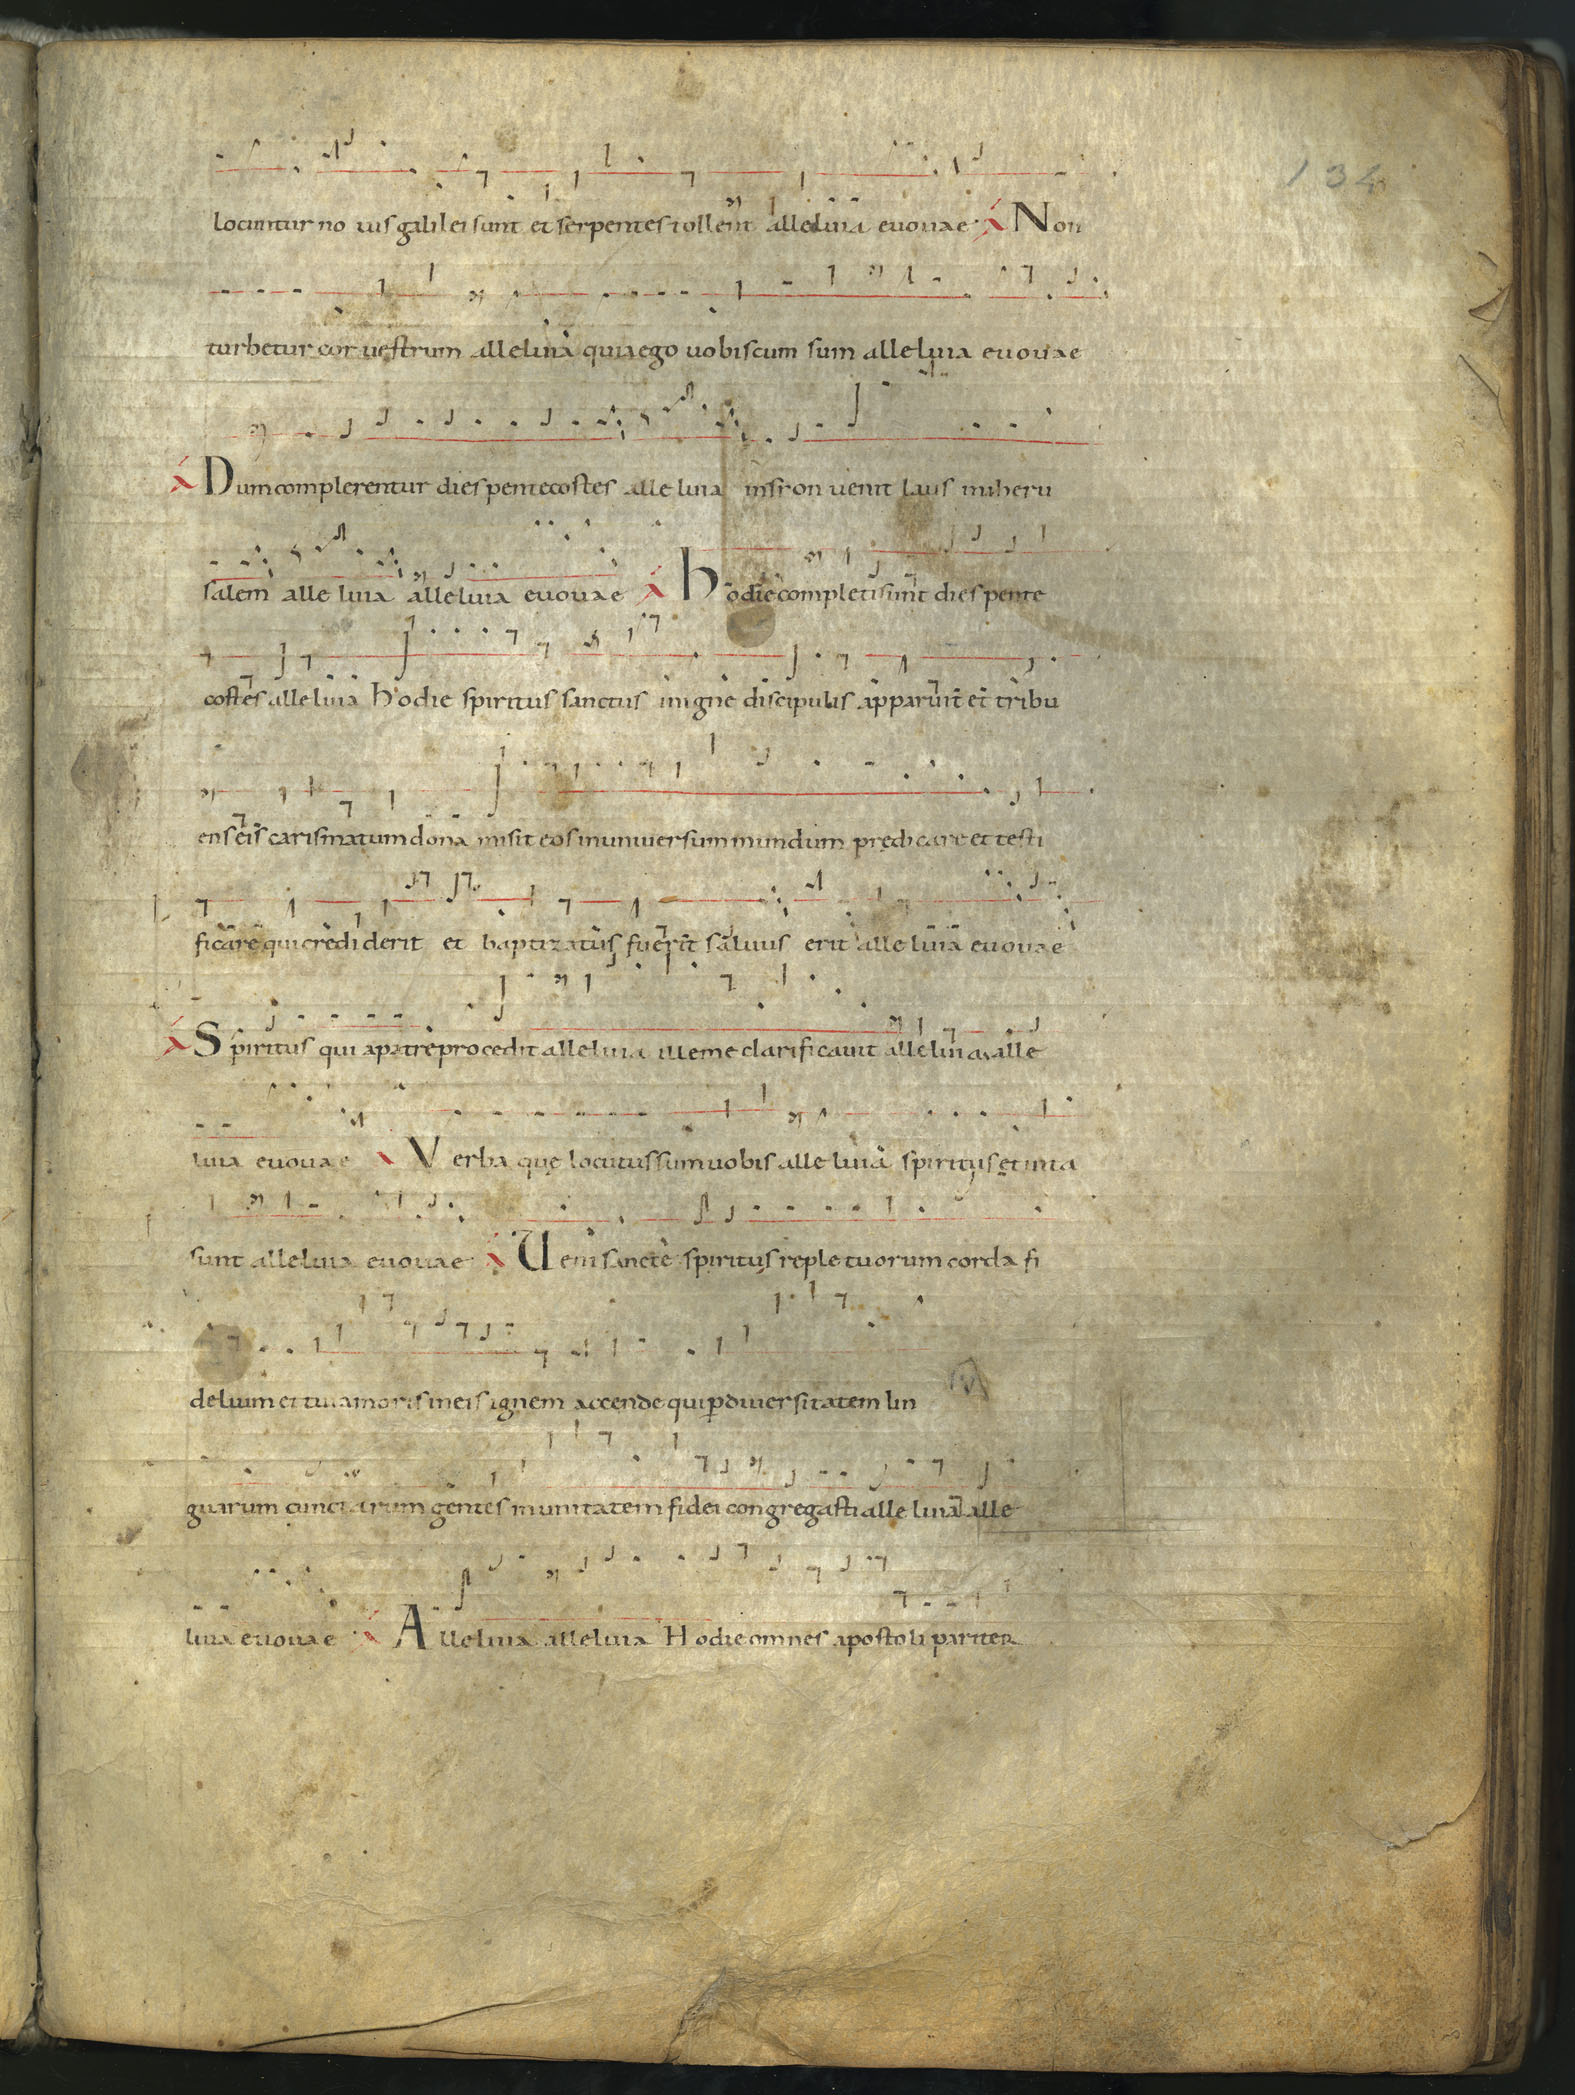 134
locuntur no uis galilei sunt et serpentes tollent alleluia euouae A Non
turbetur cor uestrum alleluia quia ego uobiscum sum alleluia euouae
A Dum complerentur dies pentecostes alleluia uenit laus iniheru
salem alleluia alleluia euouae A hodie completi sunt dies pente
costes alleluia hodie spiritus sanctus in igne discipulis apparuit et tribu
ens eis carismatum dona misit eos inuniuersum mundum prędicare et testi
ficare qui crediderit et baptizatus fuerit saluus erit alleluia euouae
A Spiritus qui apatre procedit alleluia ille me clarificauit alleluia alle
luia euouae A Verba quę locutus sum uobis alleluia spiritus et uita
sunt alleluia euouae A Ueni sancte spiritus reple tuorum corda fi
delium et tui amoris in eis ignem accende qui p diuersitatem lin
guarum cunctarum gentes inunitatem fidei congregasti alleluia alle
luia euouae A Alleluia alleluia Hodie omnes apostoli pariter